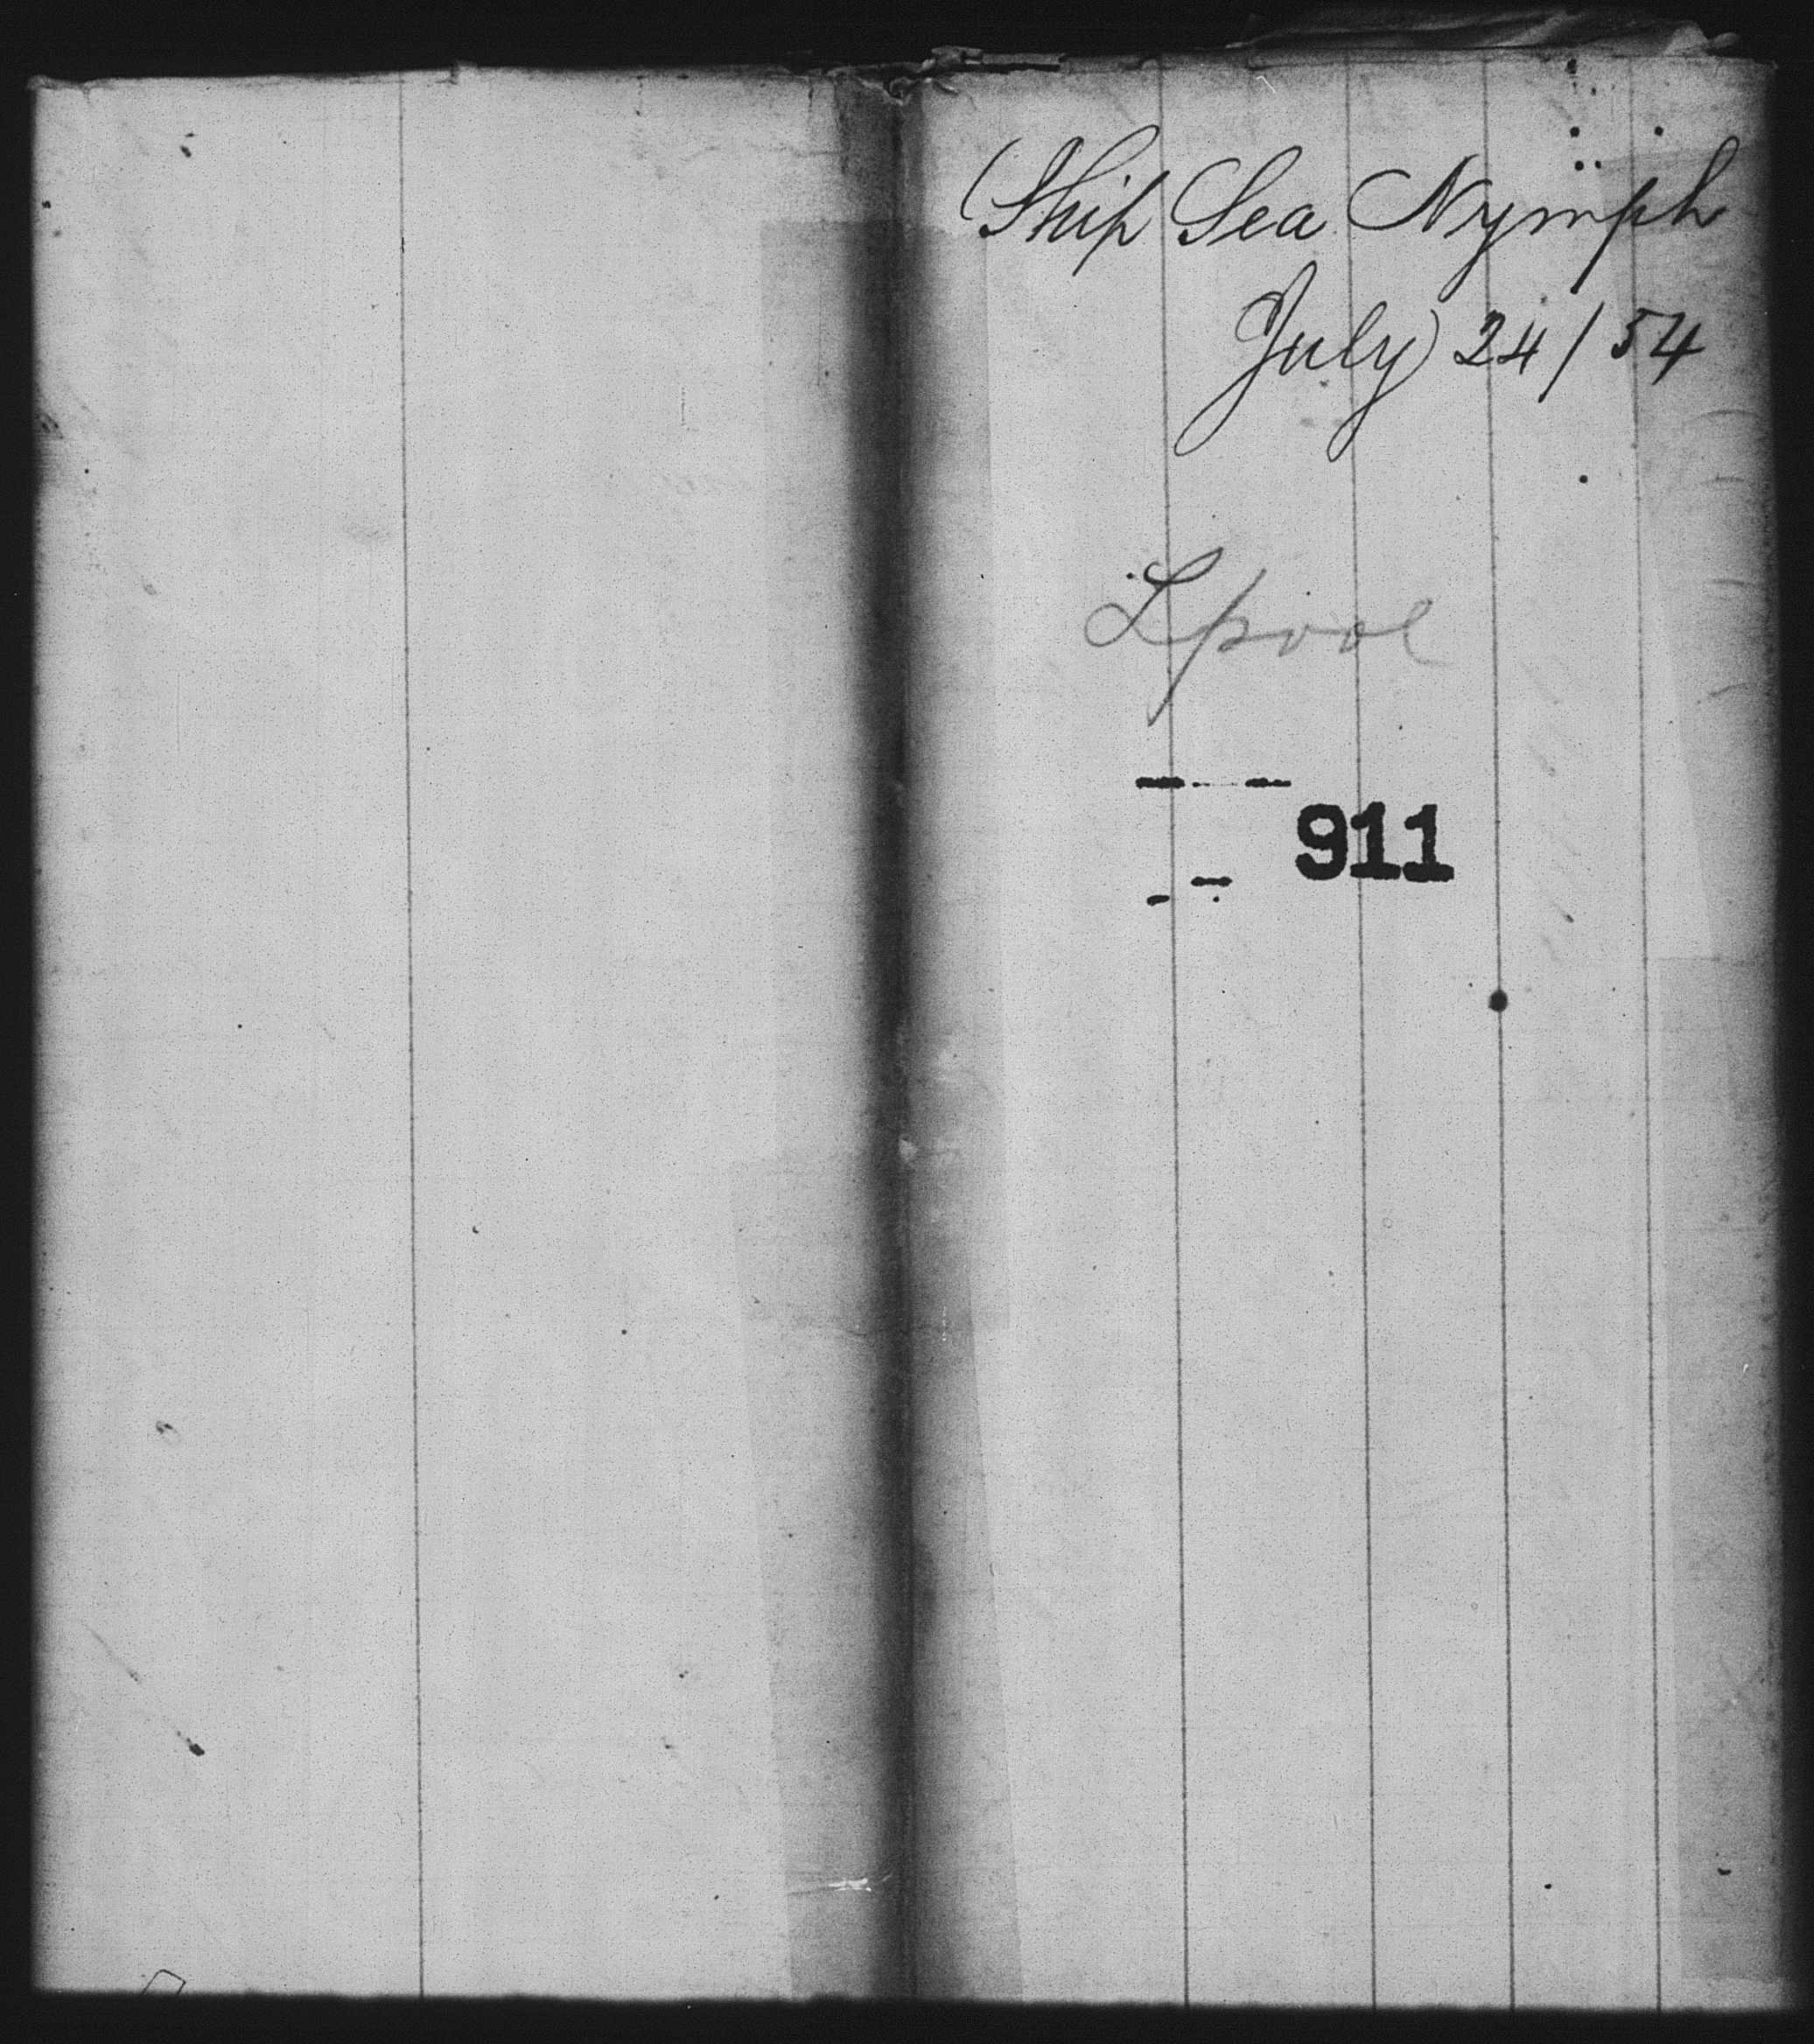 Ship Sea Nymph
July 24/54
Lpool
911